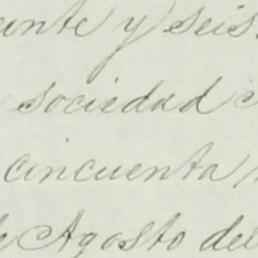 y seis
sociedad
cincuenta
Agosto del